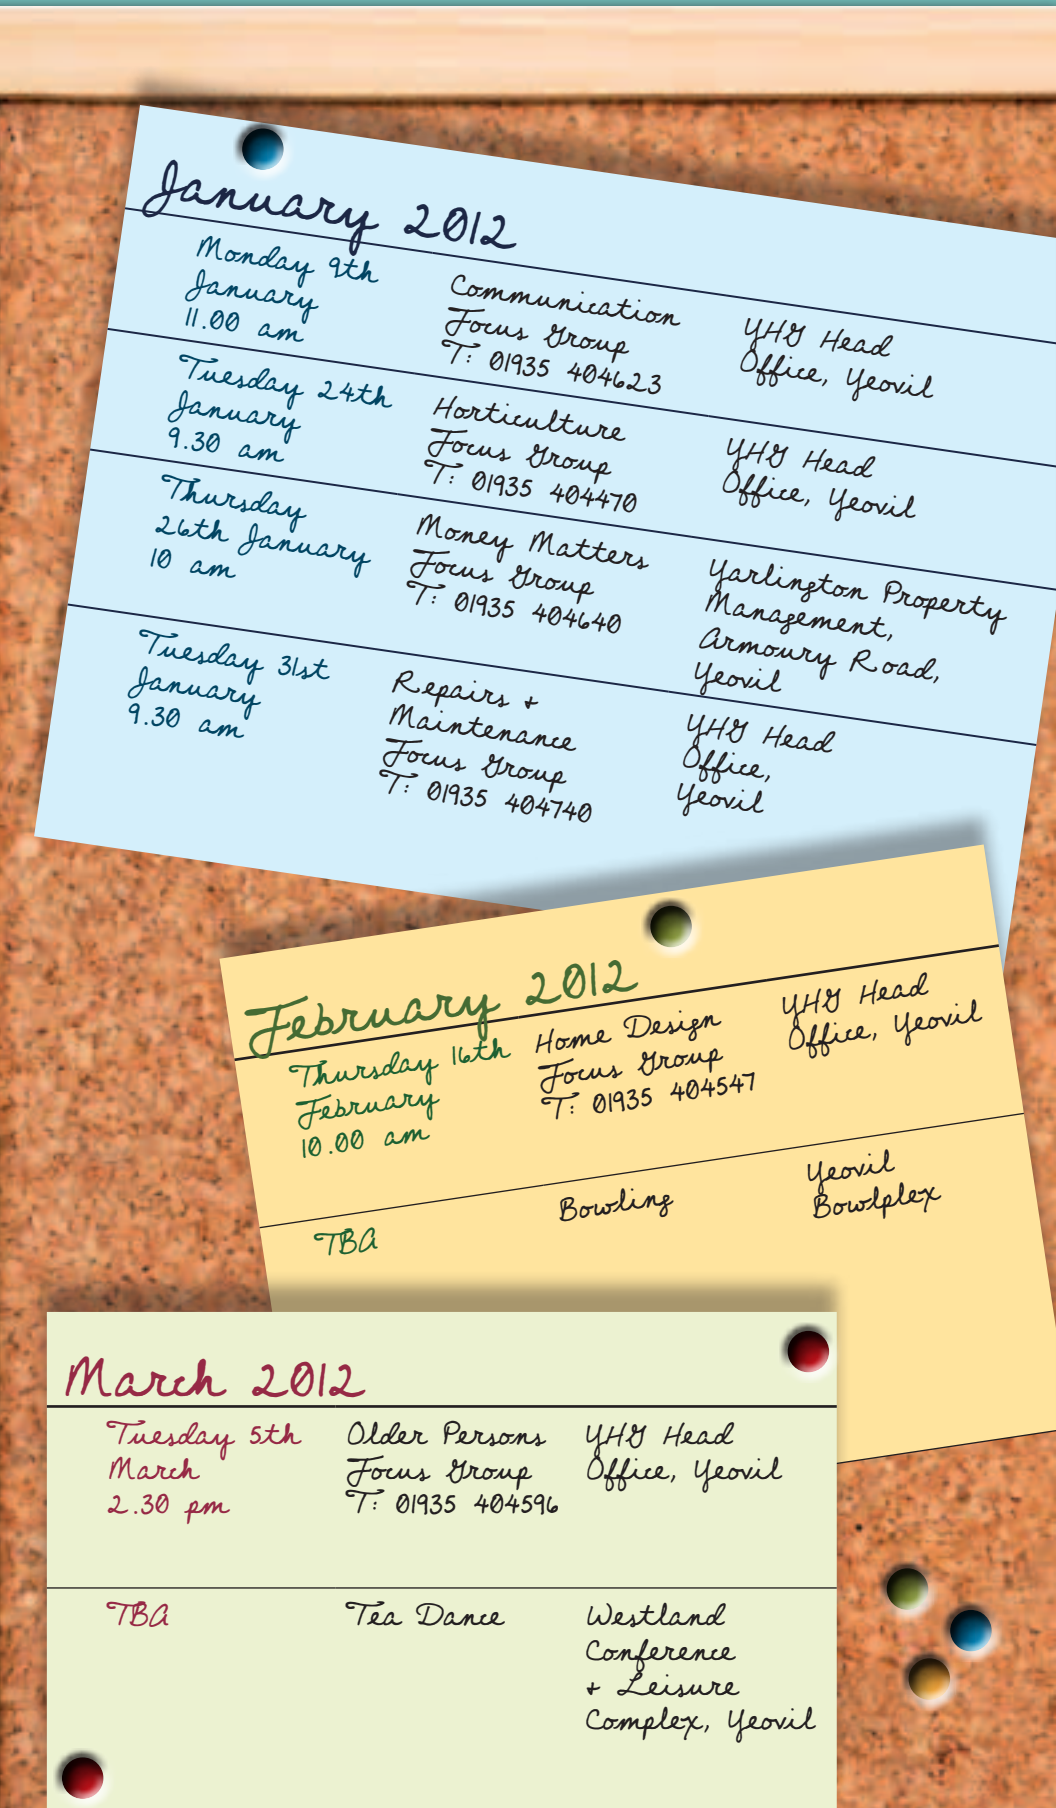 January 2012
Monday 9th
January
11.00 am
Communication
Focus Group
T: 01935 404623
YHG Head
Office, Yeovil
Tuesday 24th
January
9.30 am
Horticulture
Focus Group
T: 01935 404470
YHG Head
Office, Yeovil
Thursday
26th January
10 am
Money Matters
Focus Group
T: 01935 404640
Yarlington Property
Management,
Armoury Road,
Yeovil
Tuesday 31st
January
9.30 am
Repairs +
Maintenance
Focus Group
T: 01935 404740
YHG Head
Office,
Yeovil
February 2012
Thursday 16th
February
10.00 am
Home Design
Focus Group
T: 01935 404547
YHG Head
Office, Yeovil
TBA
Bowling
Yeovil
Bowlplex
March 2012
Tuesday 5th
March
2.30 pm
Older Persons
Focus Group
T: 01935 404596
YHG Head
Office, Yeovil
TBA
Tea Dance
Westland
Conference
+ Leisure
Complex, Yeovil